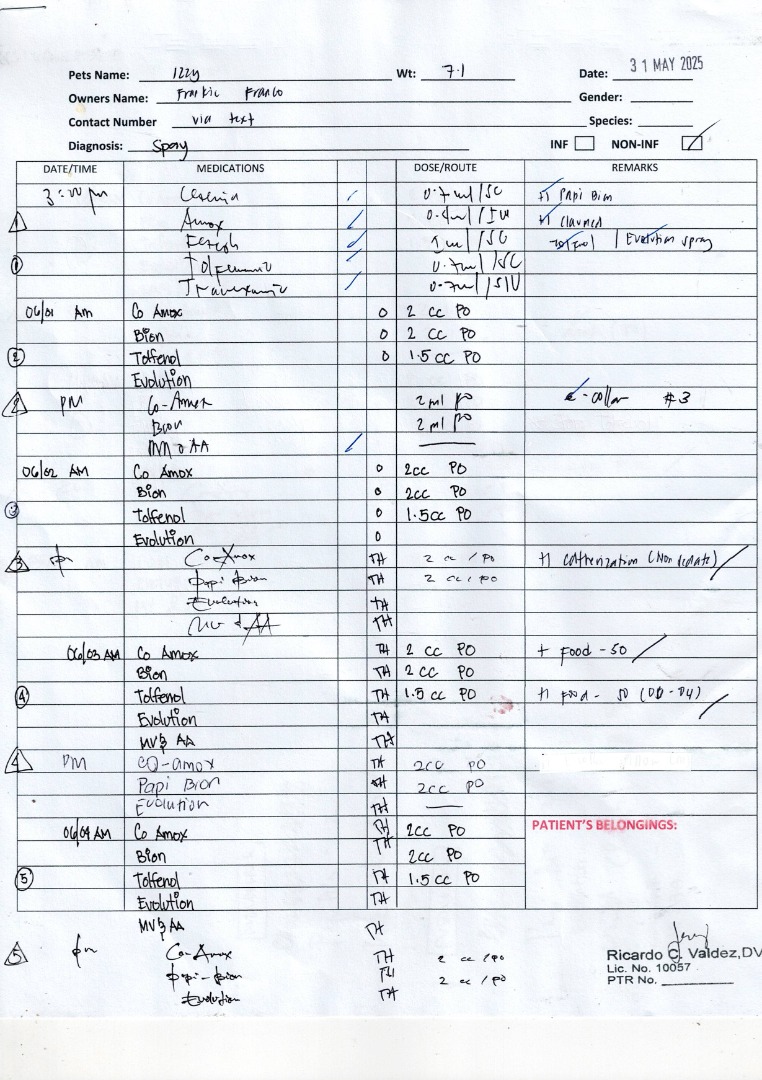 Pets Name: Izzy Wt: 7.1 Date: 31 MAY 2025
Owners Name: Frankie Franco Gender:
Contact Number via text Species:
Diagnosis: Spay INF NON-INF
DATE/TIME MEDICATIONS DOSE/ROUTE REMARKS
3:00 pm 0.7ml/SC + Papi Bion
1 Amox
1ml/SC Tolfenol | Evolution spray
1 0.7ml/SC
06/01 AM Co Amox 0 2 cc PO
Bion 0 2 cc PO
2 Tolfenol 0 1.5 cc PO
Evolution
2 PM Co-Amox 2 ml po e-collar #3
Bion 2 ml po
MV & AA
06/02 AM Co Amox 0 2cc PO
Bion 0 2cc PO
3 Tolfenol 0 1.5cc PO
Evolution 0
3 pm Co-Amox TH 2 cc / po
Papi Bion TH 2 cc / po
Evolution TH
MV & AA TH
06/03 AM Co Amox TH 2 cc PO + Food - 50
Bion TH 2 cc PO
4 Tolfenol TH 1.5 cc PO + Food - 50
Evolution TH
MV & AA TH
4 PM CO-amox TH 2cc PO
Papi Bion TH 2cc PO
Evolution TH
06/04 AM Co Amox TH 2cc PO PATIENT'S BELONGINGS:
Bion TH 2cc PO
5 Tolfenol TH 1.5 cc PO
Evolution TH
MV & AA TH
5 pm Co-Amox TH 2 cc / po
Papi-Bion TH 2 cc / po
Evolution TH
Ricardo C. Valdez, DV
Lic. No. 10057
PTR No.